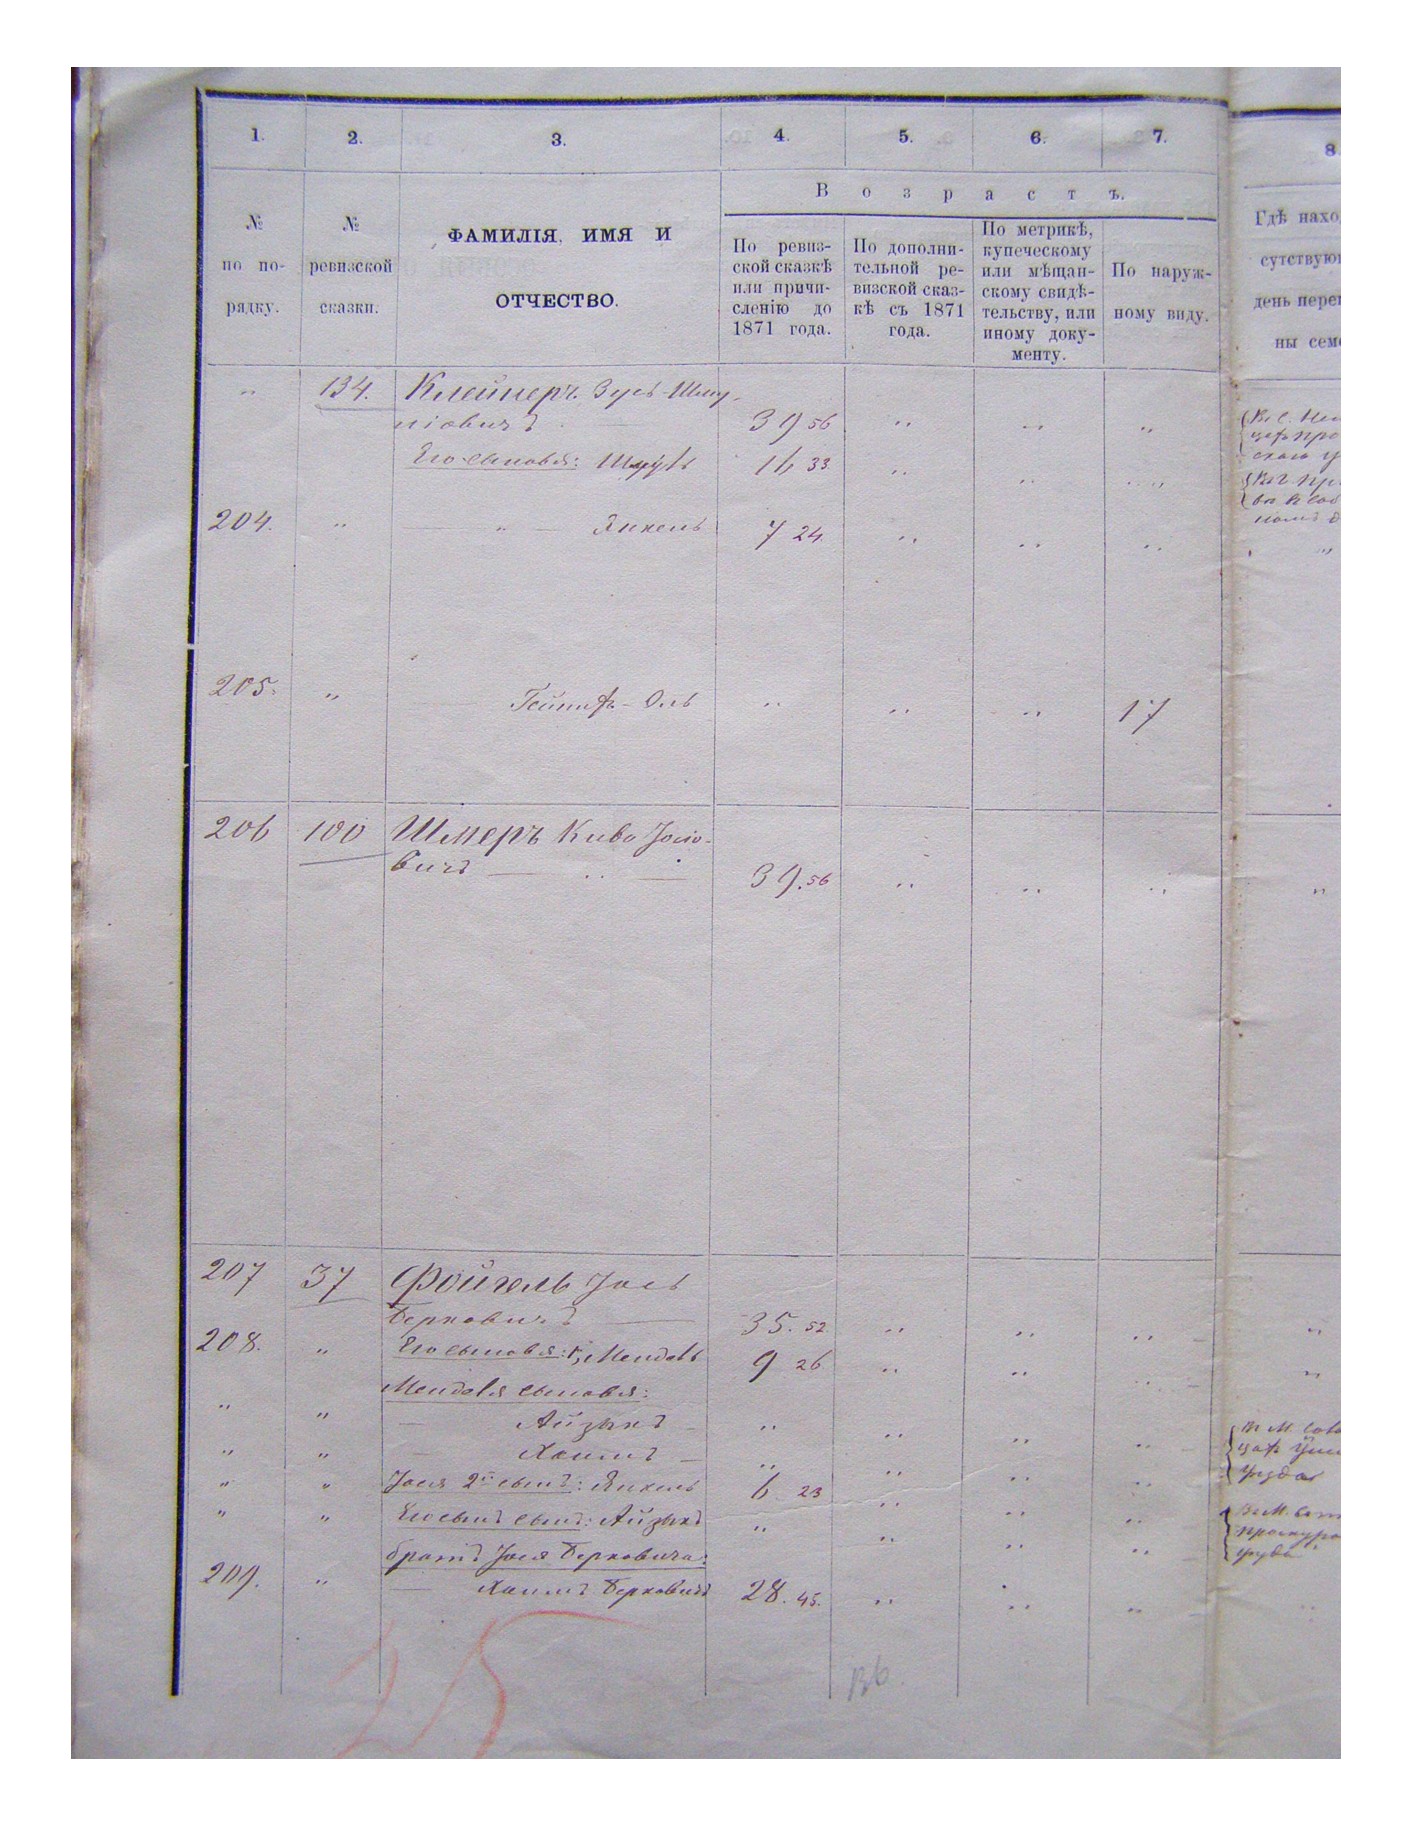 1. 2. 3. 4. 5. 6. 7. 8
Возрастъ.
№ по по-рядку.
№ ревизской сказки.
ФАМИЛІЯ, ИМЯ И
ОТЧЕСТВО.
По ревиз-
ской сказкѣ
или причи-
сленію до
1871 года.
По дополни-
тельной ре-
визской сказ-
кѣ съ 1871
года.
По метрикѣ,
купеческому
или мѣщан-
скому свидѣ-
тельству, или
иному доку-
менту.
По наруж-
ному виду.
Гдѣ нахо
сутствую
день пере
ны сем
„ 134. Клейнеръ Зусь-Шму-
ліовичъ 39 56 „ „ „
Его сыновья: Шмуль 16 33 „ „ „
204. „ „ Янкель 7 24. „ „ „ „
205. „ Гейних-Оль „ „ „ 17
206 100 Шмеръ Киво Іосіо-
вичъ „ 39. 56 „ „ „ „
207 37 Фойгель Іось
Берковичъ 35. 52. „ „ „ „
208. „ Его сыновья: 1, Мендель 9 26 „ „ „ „
Менделя сыновья:
„ „ Айзыкъ „ „ „ „
„ „ Хаимъ „ „ „ „
„ „ Іося 2й сынъ: Янкель 6 23 „ „ „
„ „ Его сынъ: Айзыкъ „ „ „ „
братъ Іося Берковича:
209. „ Хаимъ Берковичъ 28. 45. „ „ „ „
25